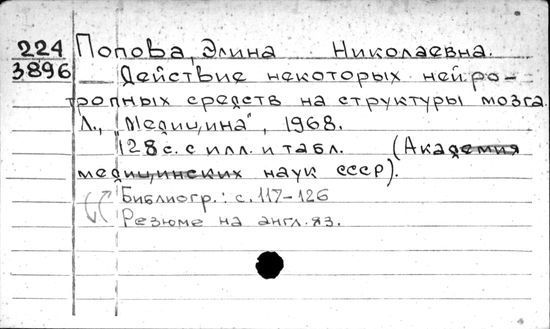 224 Попова, Элина Николаевна.
3896 Действие некоторых нейро-
тропных средств на структуры мозга.
Л., "Медицина", 1968.
128 с. с илл. и табл. (Академия
медицинских наук СССР).
Библиогр.: с. 117-126
Резюме на англ. яз.